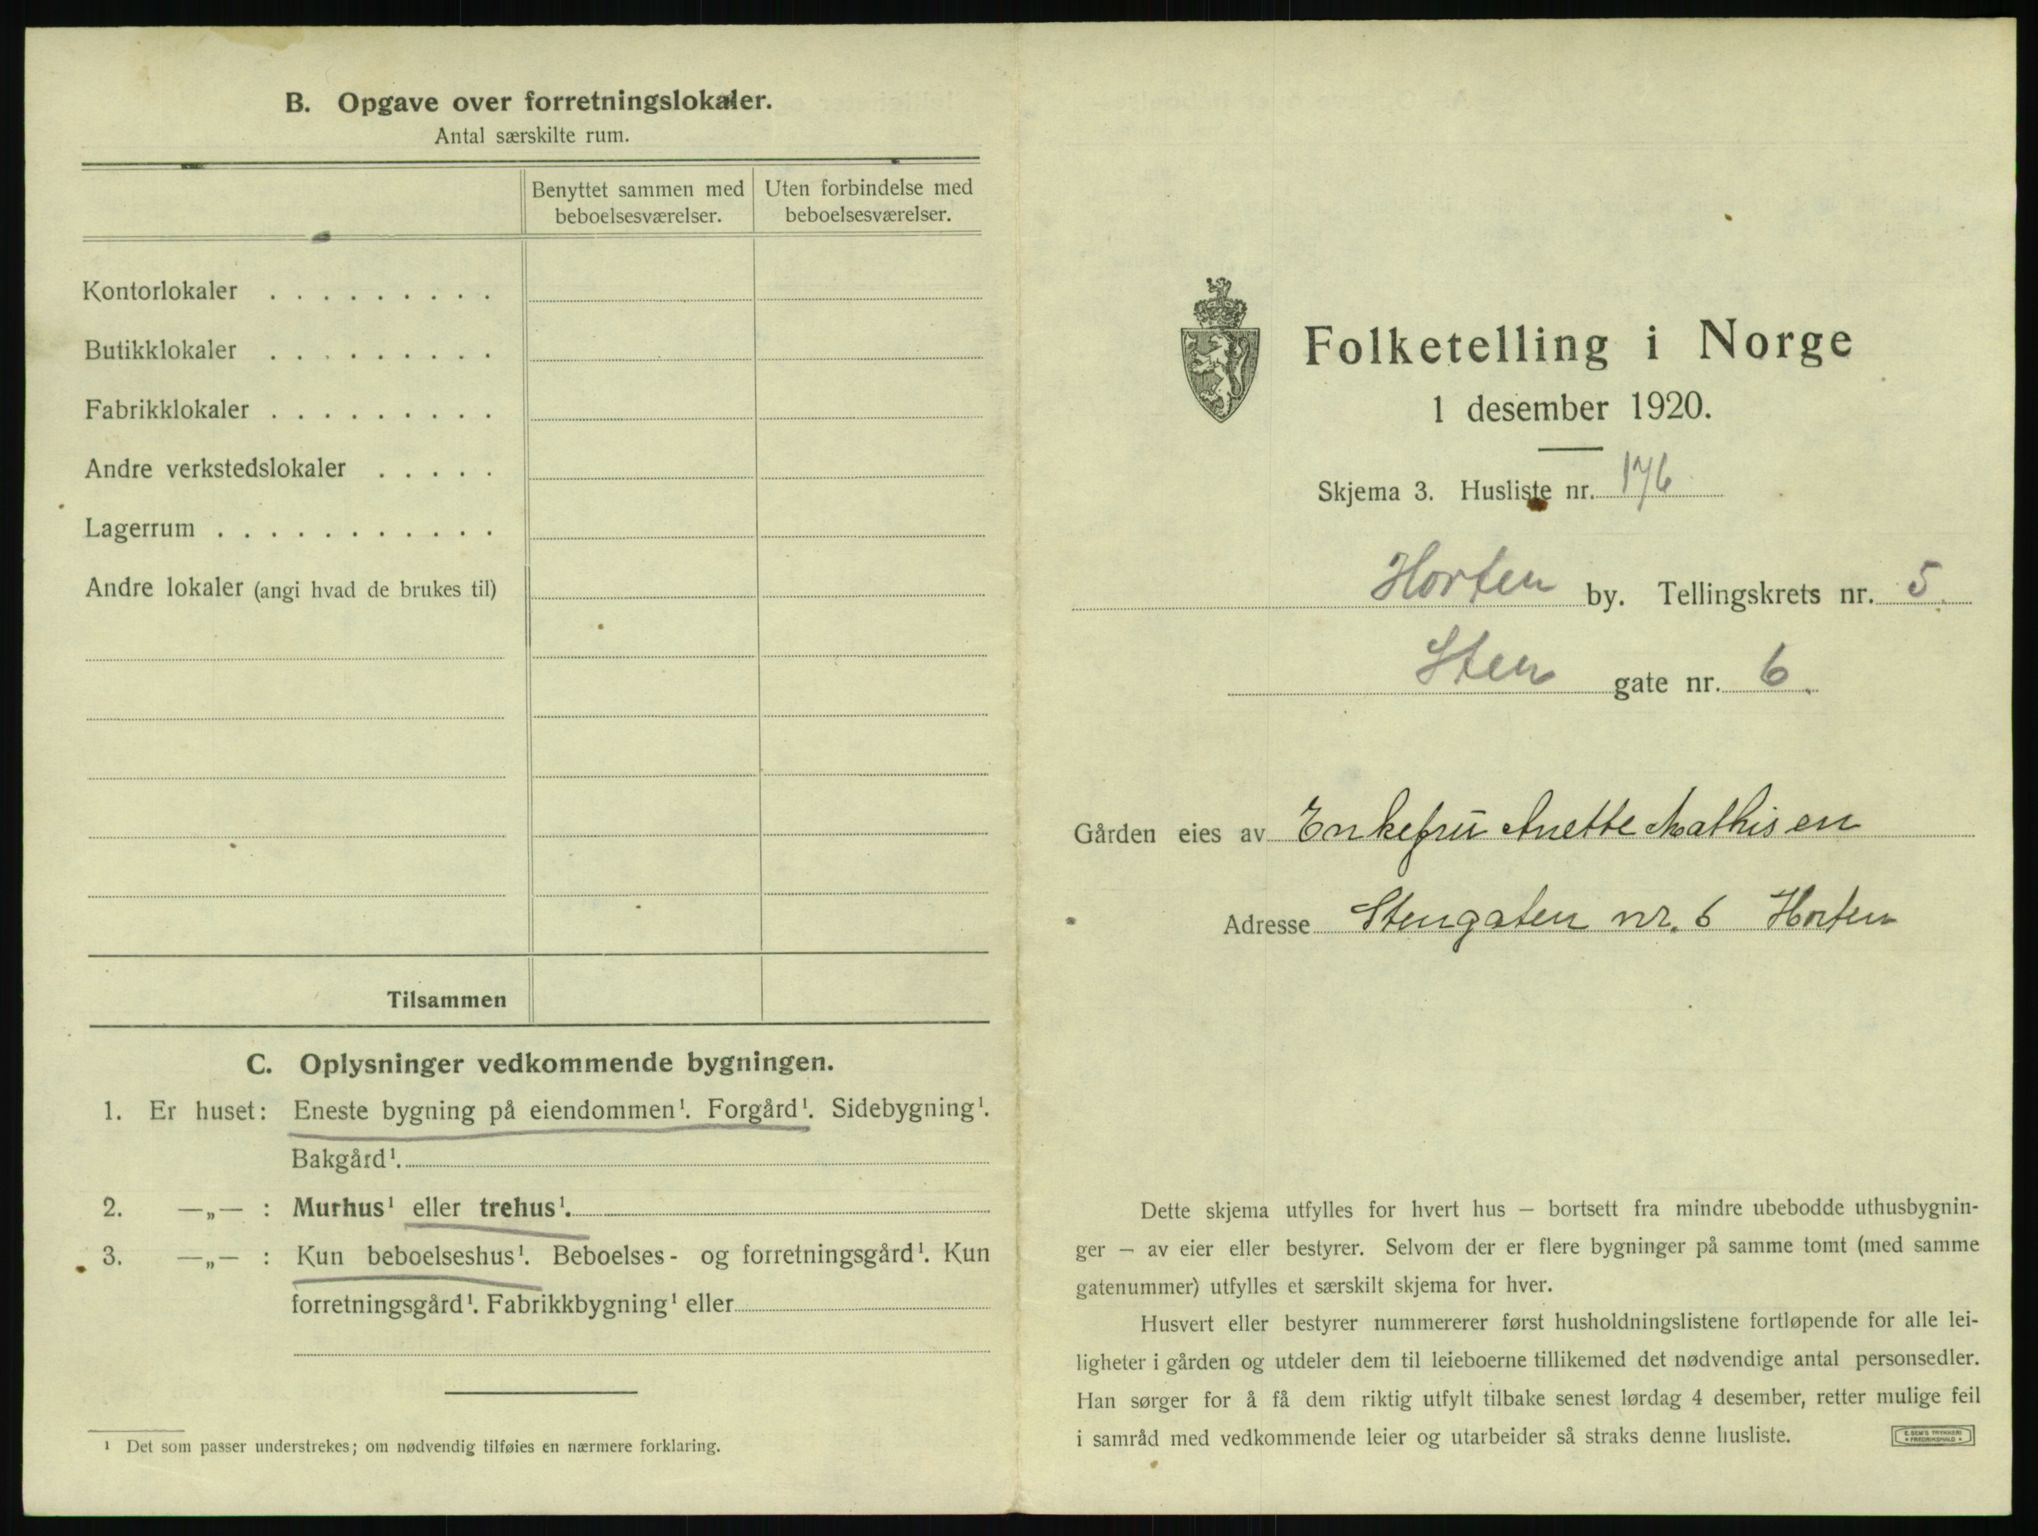 B. Opgave over forretningslokaler.
Antal særskilte rum.
Benyttet sammen med beboelsesværelser.
Uten forbindelse med beboelsesværelser.
Kontorlokaler . . . . . . . . .
Butikklokaler . . . . . . . . .
Fabrikklokaler . . . . . . . . .
Andre verkstedslokaler . . . . .
Lagerrum . . . . . . . . . . .
Andre lokaler (angi hvad de brukes til)
Tilsammen
C. Oplysninger vedkommende bygningen.
1. Er huset: Eneste bygning på eiendommen¹. Forgård¹. Sidebygning¹.
Bakgård¹.
2. —„— : Murhus¹ eller trehus¹.
3. —„— : Kun beboelseshus¹. Beboelses- og forretningsgård¹. Kun
forretningsgård¹. Fabrikkbygning¹ eller
¹ Det som passer understrekes; om nødvendig tilføies en nærmere forklaring.
Folketelling i Norge
1 desember 1920.
Skjema 3. Husliste nr. 176
Horten by. Tellingskrets nr. 5.
Sten gate nr. 6.
Gården eies av Enkefru Anette Mathisen
Adresse Stengaten nr. 6 Horten
Dette skjema utfylles for hvert hus — bortsett fra mindre ubebodde uthusbygnin-
ger — av eier eller bestyrer. Selvom der er flere bygninger på samme tomt (med samme
gatenummer) utfylles et særskilt skjema for hver.
Husvert eller bestyrer nummererer først husholdningslistene fortløpende for alle lei-
ligheter i gården og utdeler dem til leieboerne tillikemed det nødvendige antal personsedler.
Han sørger for å få dem riktig utfylt tilbake senest lørdag 4 desember, retter mulige feil
i samråd med vedkommende leier og utarbeider så straks denne husliste.
E. SEM'S TRYKKERI
• FREDRIKSHALD •